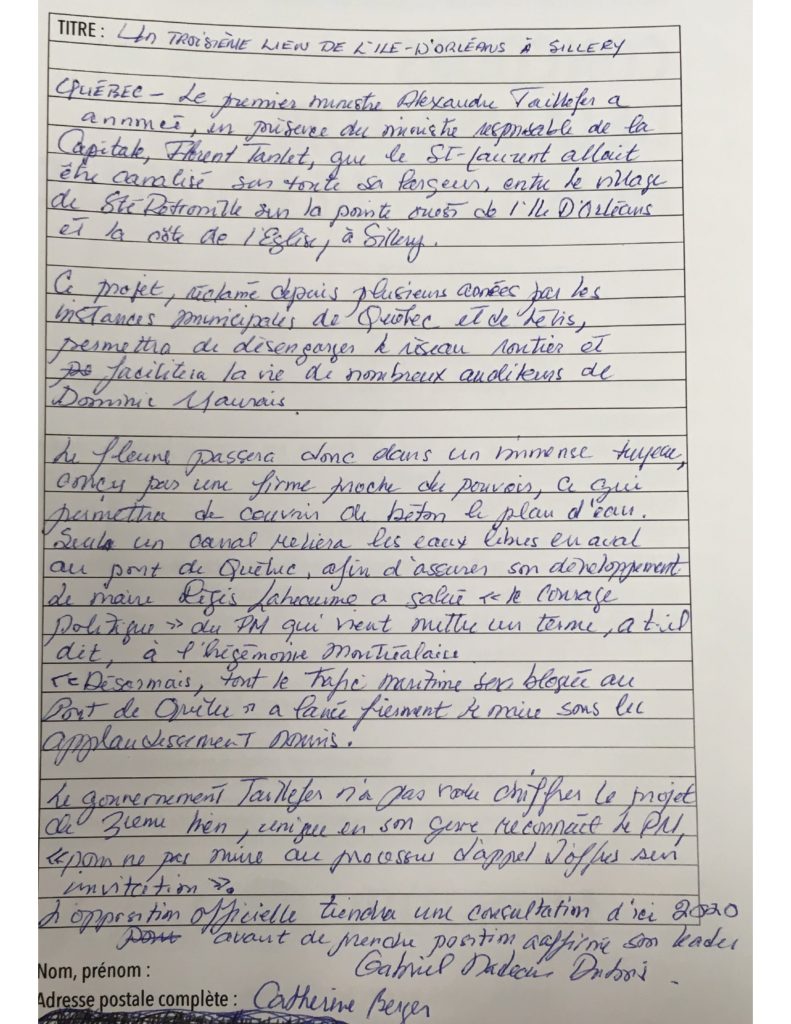 TITRE : UN TROISIÈME LIEN DE L'ILE-D'ORLÉANS À SILLERY
QUÉBEC - Le premier ministre Alexandre Taillefer a
annoncé, en présence du ministre responsable de la
Capitale, Florent Tanlet, que le St-Laurent allait
être canalisé sur toute sa largeur, entre le village
de Ste Pétronille sur la pointe ouest de l'Ile D'Orléans
et la côte de l'Eglise, à Sillery.
Ce projet, réclamé depuis plusieurs années par les
instances municipales de Québec et de Lévis,
permettra de désengorger le réseau routier et
facilitera la vie de nombreux auditeurs de
Dominic Maurais
Le fleuve passera donc dans un immense tuyeau,
conçu par une firme proche du pouvoir, ce qui
permettra de couvrir de béton le plan d'eau.
Seul un canal reliera les eaux libres en aval
au pont de Québec, afin d'assurer son développement
Le maire Régis Labeaume a salué « le courage
politique » du PM qui vient mettre un terme, a t-il
dit, à l'hégémonie Montréalaise
« Désormais, tout le trafic maritime sera bloquée au
Pont de Québec » a lancé fièrement le maire sous les
applaudissement nourris.
Le gouvernement Taillefer n'a pas voulu chiffrer le projet
de 3ieme lien, unique en son genre reconnaît le PM,
« pour ne pas nuire au processus d'appel d'offres sur
invitation ».
L'opposition officielle tiendra une consultation d'ici 2020
avant de prendre position a affirmé son leader
Gabriel Nadeau Dubois.
Nom, prénom :
Adresse postale complète : Catherine Berger